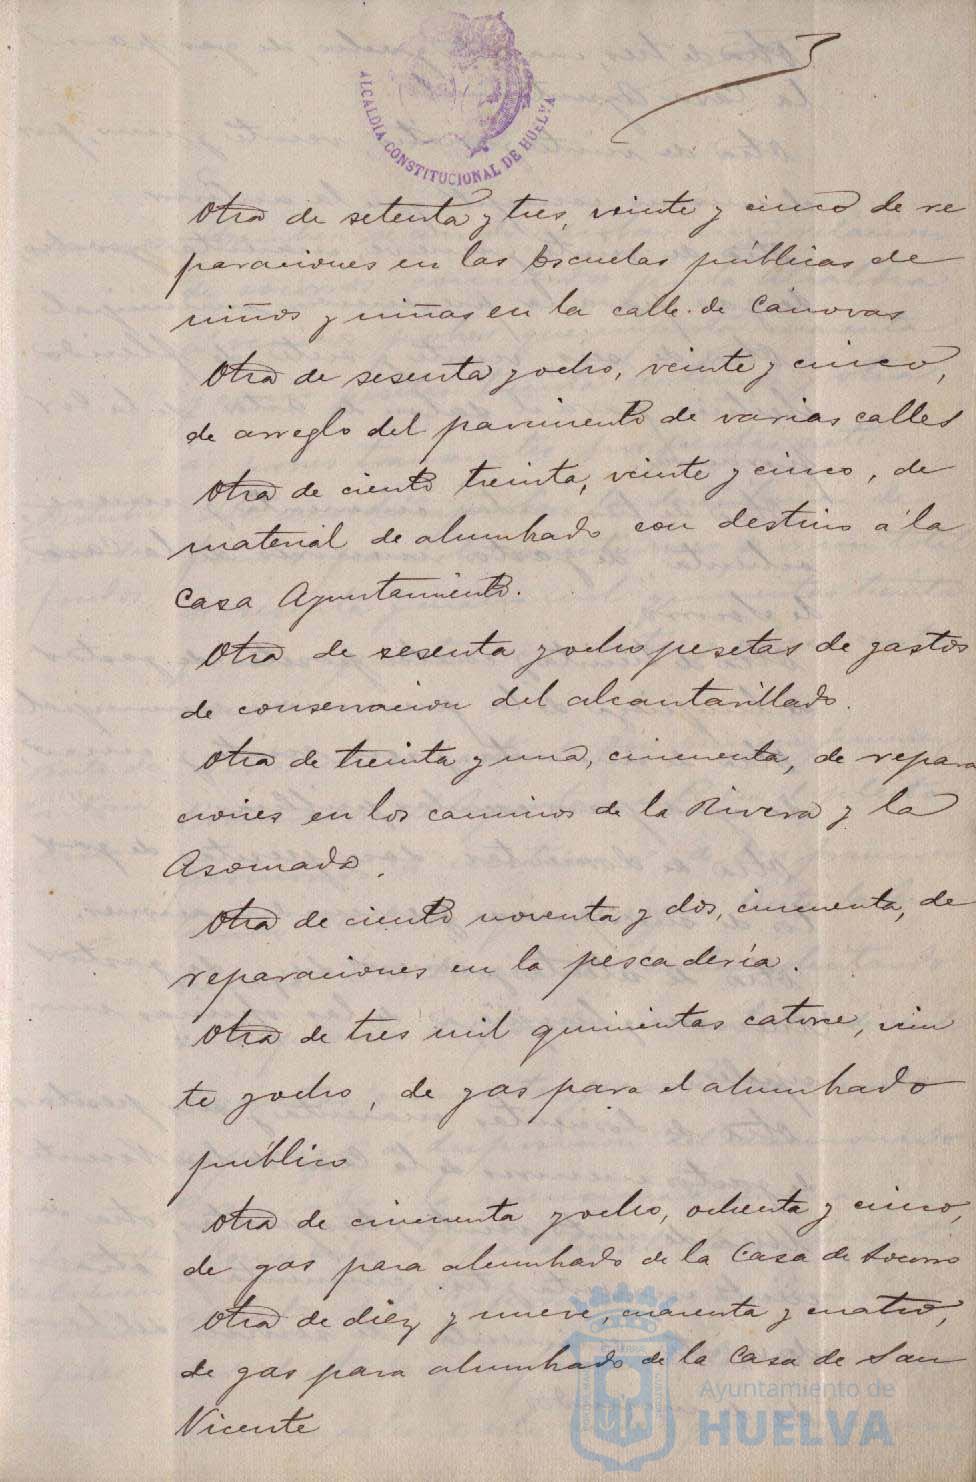 3
ALCALDIA CONSTITUCIONAL DE HUELVA
Otra de setenta y tres, veinte y cinco de re
paraciones en las Escuelas públicas de
niños y niñas en la calle de Cánovas
Otra de sesenta y ocho, veinte y cinco,
de arreglo del pavimento de varias calles
Otra de ciento treinta, veinte y cinco, de
material de alumbrado con destino á la
Casa Ayuntamiento.
Otra de sesenta y ocho pesetas de gastos
de conservacion del alcantarillado.
Otra de treinta y una, cincuenta, de repara
ciones en los caminos de la Rivera y la
Asomada.
Otra de ciento noventa y dos, cincuenta, de
reparaciones en la pescadería.
Otra de tres mil quinientas catorce, vein
te y ocho, de gas para el alumbrado
público
Otra de cincuenta y ocho, ochenta y cinco,
de gas para alumbrado de la Casa de Socorro
Otra de diez y nueve, cuarenta y cuatro,
de gas para alumbrado de la Casa de San
Vicente
Ayuntamiento de
HUELVA